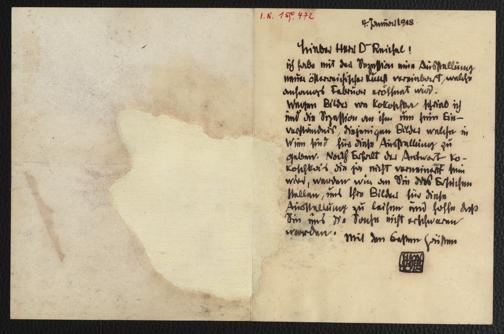 I.N. 159.472
4. Januar 1918
Lieber Herr Dr Reichel!
ich habe mit der Sezession eine Ausstellung
neuer österreichischer Kunst vereinbart, welche
anfangs Februar eröffnet wird.
Wegen Bilder von Kokoschka schrieb ich
und die Sezession an ihn um sein Ein-
verständnis, diejenigen Bilder welche in
Wien sind für diese Ausstellung zu
geben. Nach Erhalt der Antwort Ko-
koschkas, die ja nicht verneinend sein
wird, werden wir an Sie das Ersuchen
stellen, uns Ihre Bilder für diese
Ausstellung zu leihen und hoffe daß
Sie uns die Sache nicht erschweren
werden.
Mit den besten Grüßen